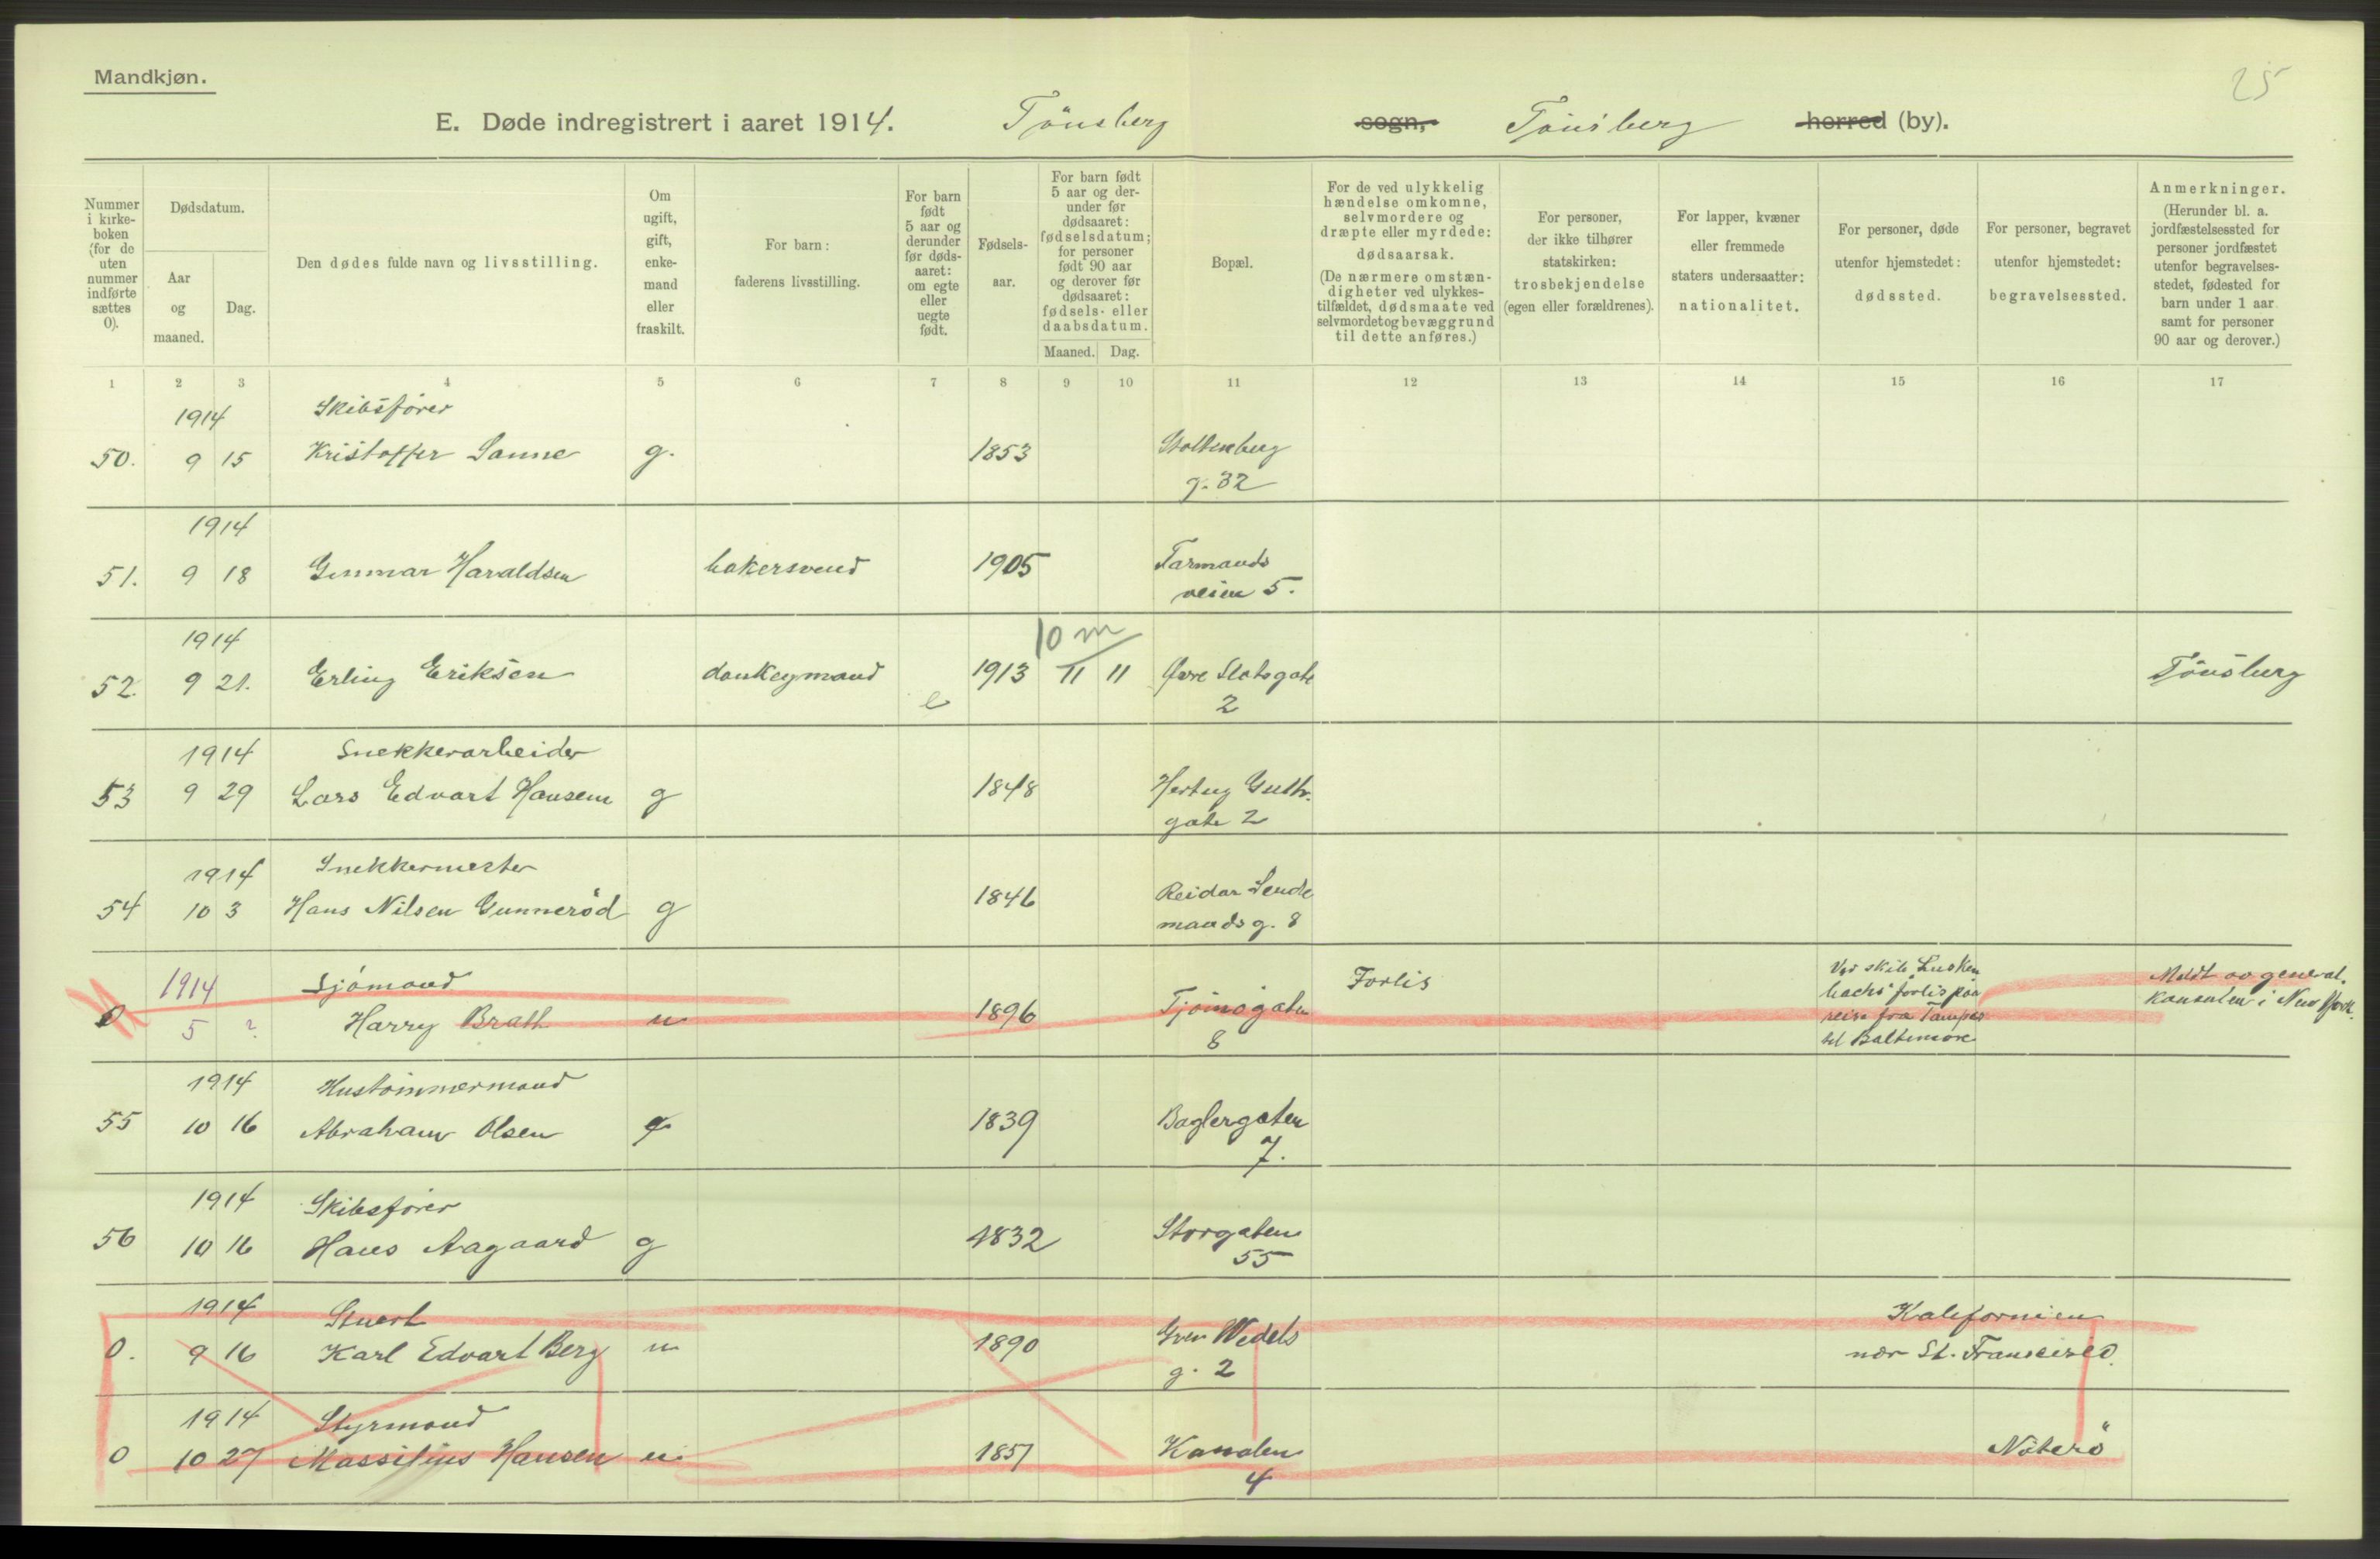 Mandkjøn.
25
E. Døde indregistrert i aaret 1914. Tönsberg sogn, Tönsberg herred (by).
Nummer i kirke- boken (for de uten nummer indførte sættes 0).
Dødsdatum.
Aar og maaned.
Dag.
Den dødes fulde navn og livsstilling.
Om ugift, gift, enke- mand eller fraskilt.
For barn: faderens livsstilling.
For barn født 5 aar og derunder før døds- aaret: om egte eller uegte født.
Fødsels- aar.
For barn født 5 aar og der- under før dødsaaret: fødselsdatum; for personer født 90 aar og derover før dødsaaret: fødsels- eller daabsdatum.
Maaned. Dag.
Bopæl.
For de ved ulykkelig hændelse omkomne, selvmordere og dræpte eller myrdede: dødsaarsak. (De nærmere omstæn- digheter ved ulykkes- tilfældet, dødsmaate ved selvmordet og bevæggrund til dette anføres.)
For personer, der ikke tilhører statskirken: trosbekjendelse (egen eller forældrenes).
For lapper, kvæner eller fremmede staters undersaatter: nationalitet.
For personer, døde utenfor hjemstedet: dødssted.
For personer, begravet utenfor hjemstedet: begravelsessted.
Anmerkninger. (Herunder bl. a. jordfæstelsessted for personer jordfæstet utenfor begravelses- stedet, fødested for barn under 1 aar samt for personer 90 aar og derover.)
1 2 3 4 5 6 7 8 9 10 11 12 13 14 15 16 17
1914 Skibsfører
50. 9 15 Kristoffer Sanne g. 1853 Stoltenberg
g. 32
1914
51. 9 18 Gunnar Haraldsen bakersvend 1905 Farmands
veien 5.
1914 10 m
52. 9 21. Erling Eriksen donkeymand e 1913 11 11 Øvre Slotsgate Tönsberg
2
1914 Snekkerarbeider
53 9 29 Lars Edvart Hansen g 1848 Hertug Guth.
gate 2
1914 Snekkermester
54 10 3 Hans Nilsen Gunneröd g 1846 Reidar Sende
mands g. 8
1914 Sjömand Forlis Ved skib
0 5 ? Harry Brath u 1896 Tjömögaten forlis paa Meldt av general-
8 reise fra Tampa konsulen i New York.
til Baltimore
1914 Hustömmermand
55 10 16 Abraham Olsen g 1839 Baglergaten
7.
1914 Skibsfører
56 10 16 Hans Aagaard g 1832 Storgaten
55
1914 Stuert Kalifornien
0. 9 16 Karl Edvart Berg u 1890 Grev Wedels nær St. Francisco.
g. 2
1914 Styrmand
0 10 27 Massilius Hansen u. 1851 Kanalen Nöterö
4